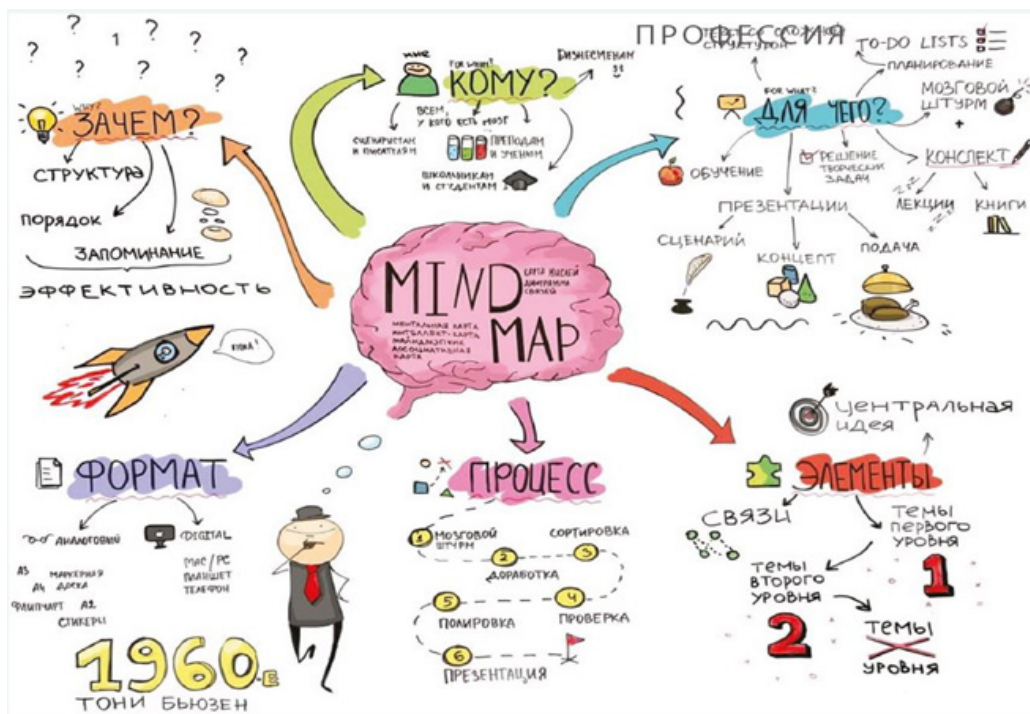 ПРОФЕССИЯ
?
?
1
?
?
?
?
?
?
WHY?
ЗАЧЕМ?
СТРУКТУРА
ПОРЯДОК
ЗАПОМИНАНИЕ
ЭФФЕКТИВНОСТЬ
МНЕ
FOR WHOM?
КОМУ?
БИЗНЕСМЕНАМ
ВСЕМ,
У КОГО ЕСТЬ МОЗГ
СЦЕНАРИСТАМ
И ПИСАТЕЛЯМ
ПРЕПОДАМ
И УЧЕНЫМ
ШКОЛЬНИКАМ
И СТУДЕНТАМ
СТРУКТУРОЙ
TO-DO LISTS
ПЛАНИРОВАНИЕ
FOR WHAT?
ДЛЯ ЧЕГО?
МОЗГОВОЙ
ШТУРМ
+
КОНСПЕКТ
ЛЕКЦИИ
КНИГИ
ОБУЧЕНИЕ
РЕШЕНИЕ
ТВОРЧЕСКИХ
ЗАДАЧ
ПРЕЗЕНТАЦИИ
СЦЕНАРИЙ
КОНЦЕПТ
ПОДАЧА
MIND
MAP
КАРТА МЫСЛЕЙ
ДИАГРАММА
СВЯЗЕЙ
МЕНТАЛЬНАЯ КАРТА
ИНТЕЛЛЕКТ-КАРТА
МАЙНДМЭППИНГ
АССОЦИАТИВНАЯ
КАРТА
ФОРМАТ
АНАЛОГОВЫЙ
DIGITAL
А3
А4
МАРКЕРНАЯ
ДОСКА
ФЛИПЧАРТ
А2
СТИКЕРЫ
MAC/PC
ПЛАНШЕТ
ТЕЛЕФОН
1960-Е
ТОНИ БЬЮЗЕН
ПРОЦЕСС
1
МОЗГОВОЙ
ШТУРМ
2
ДОРАБОТКА
СОРТИРОВКА
3
4
ПРОВЕРКА
5
ПОЛИРОВКА
6
ПРЕЗЕНТАЦИЯ
ЦЕНТРАЛЬНАЯ
ИДЕЯ
ЭЛЕМЕНТЫ
СВЯЗИ
ТЕМЫ
ПЕРВОГО
УРОВНЯ
1
ТЕМЫ
ВТОРОГО
УРОВНЯ
2
ТЕМЫ
X
УРОВНЯ